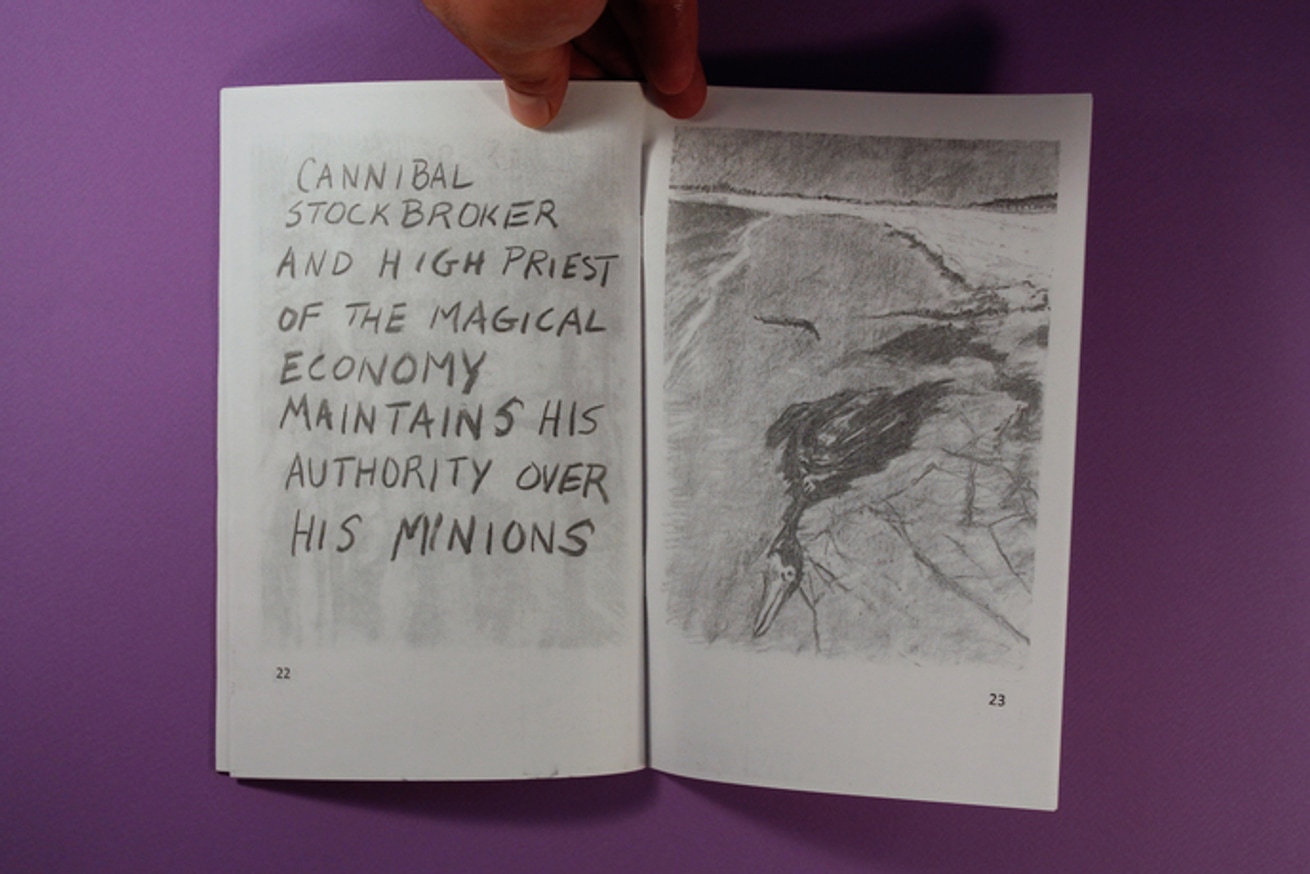 CANNIBAL
STOCKBROKER
AND HIGH PRIEST
OF THE MAGICAL
ECONOMY
MAINTAINS HIS
AUTHORITY OVER
HIS MINIONS
22
23